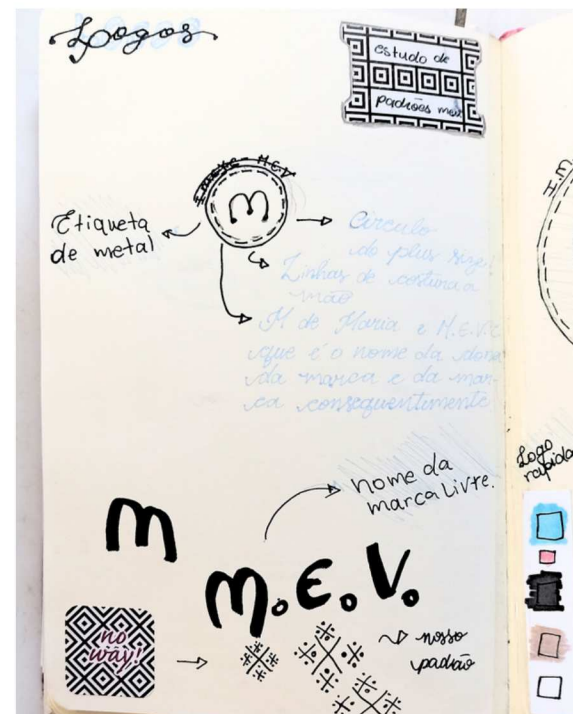 Logos
estudo de
padrões
M.E.V
m
Etiqueta
de metal
Circulo
do plus size!
Linhas de costura a
mão
M de Maria e M.E.V.
que é o nome da dona
da marca e da mar-
ca consequentimente
nome da
marca Livre.
m
M.E.V.
no
way!
nosso
padrão
Logo
rapida